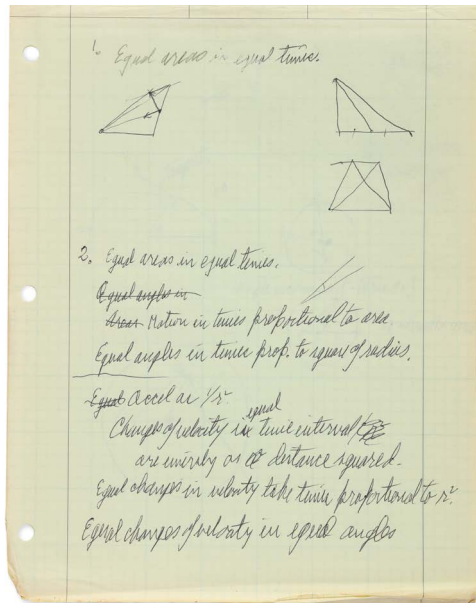 1. Equal areas in equal times.
2. Equal areas in equal times.
Equal angles in
Areas Motion in times proportional to area
Equal angles in times prop. to square of radius.
Equal Accel as 1/r²
equal
Changes of velocity in time interval
are inversly as distance squared.
Equal changes in velocity take time proportional to r².
Equal changes of velocity in equal angles